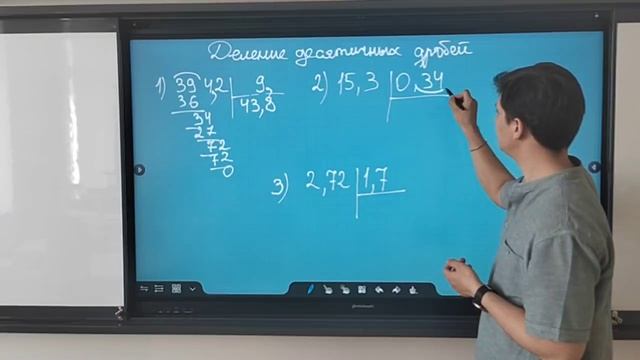 Деление десятичных дробей
1) 394,2 | 9
36 43,8
34
27
72
72
0
2) 15,3 | 0,34
3) 2,72 | 1,7